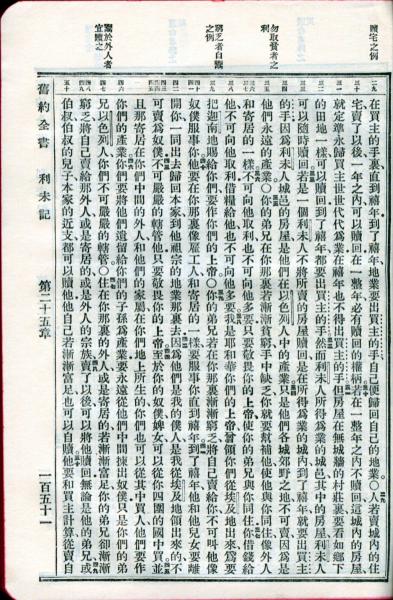 贖宅之例
勿取貧者之利
窮乏者自鬻之例
鬻於外人者宜贖之
在買主的手裏直到禧年到了禧年地業要出買主的手自己便歸回自己的地業○人若賣城內的住
宅賣了以後一年之內可以贖回在一整年必有贖回的權柄若在一整年之內不贖回這城內的房屋
就定準永歸買主世世代代為業在禧年也不得出買主的手但房屋在無城牆的村莊裏要看如鄉下
的田地一樣可以贖回到了禧年都要出買主的手然而利未人所得為業的城邑其中的房屋利未人
可以隨時贖回若是一個利未人不將所賣的房屋贖回是在所得為業的城內到了禧年就要出買主
的手因為利未人城邑的房屋是他們在以色列人中的產業只是他們各城郊野之地不可賣因為是
他們永遠的產業○你的弟兄在你那裏若漸漸貧窮手中缺乏你就要幫補他使他與你同住像外人
和寄居的一樣不可向他取利也不可向他多要只要敬畏你的上帝使你的弟兄與你同住你借錢給
他不可向他取利借糧給他也不可向他多要我是耶和華你們的上帝曾領你們從埃及地出來為要
把迦南地賜給你們要作你們的上帝○你的弟兄若在你那裏漸漸窮乏將自己賣給你不可叫他像
奴僕服事你他要在你那裏像雇工人和寄居的一樣要服事你直到禧年到了禧年他和他兒女要離
開你一同出去歸回本家到他祖宗的地業那裏去因為他們是我的僕人是我從埃及地領出來的不
可賣為奴僕不可嚴嚴的轄管他只要敬畏你的上帝至於你的奴僕婢女可以從你四圍的國中買並
且那寄居在你們中間的外人和他們的家屬在你們地上所生的你們也可以從其中買人他們要作
你們的產業你們要將他們遺留給你們的子孫為產業要永遠從他們中間揀出奴僕只是你們的弟
兄以色列人你們不可嚴嚴的轄管○住在你那裏的外人或是寄居的若漸漸富足你的弟兄卻漸漸
窮乏將自己賣給那外人或是寄居的或是外人的宗族賣了以後可以將他贖回無論是他的弟兄或
伯叔伯叔的兒子本家的近支都可以贖他他自己若漸漸富足也可以自贖他要和買主計算從賣自
舊約全書 利未記 第二十五章 一百五十一